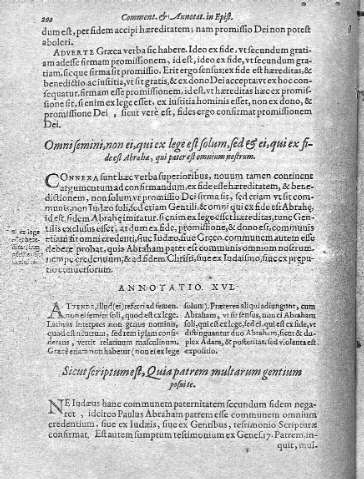 202 Comment. & Annotat. in Epist.
dum est, per fidem accipi hæreditatem; nam promissio Dei non potest
aboleri.
ADVERTE Græca verba sic habere. Ideo ex fide, vt secundum grati-
am ad esse firmam promissionem, id est, ideo ex fide, vt secundum gra-
tiam, sicque firma sit promissio. Erit ergo sensus; ex fide est hæreditas, &
benedictio ac iustitia, vt gratis sit, & ex dono Dei accepta vt ex hoc con-
sequatur, firmam esse promissionem, id est, vt hæreditas hæc ex promis-
sione sit, si enim ex lege esset, ex iustitia hominis esset, non ex dono, &
promissione Dei, sicut verè est, fides ergo confirmat promissionem
Dei.
Omni semini, non ei, qui ex lege est solum, sed & ei, qui ex fi-
de est Abrahæ, qui pater est omnium nostrum.
CONNEXA sunt hæc verba superioribus, nouum tamen continent
argumentum ad confirmandum, ex fide esse hæreditatem, & bene-
dictionem, non solum vt promissio Dei firma sit, sed etiam vt sit com-
munis non Iudæo soli, sed etiam Gentili & omni qui ex fide est Abrahæ,
id est, fidem Abrahę imitatur. si enim ex lege esset hæreditas, tunc Gen-
tilis exclusus esset, at dum ex fide, promissione, & dono est, communis
etiam sit omni credenti, siue Iudæo, siue Græco. communem autem esse
debere probat, quia Abraham pater est communis omnium nostrum,
nempe credentium, & ad fidem Christi, siue ex Iudaismo, siue ex præpu-
tio conuersorum.
ANNOTATIO XVI.
ATTENDE, Illud (ei) referri ad semen.
non ei semini soli, quod est ex lege.
Latinus interpres non genus nominis,
quod est neutrum, sed rem ipsam consi-
derans, vertit relatiuum masculinum.
Græcè enim non habetur (non ei ex lege
solum). Præterea alij qui adiungitur, cum
Abraham, vt sit sensus, non ei Abraham
soli, qui est ex lege, sed ei, qui est ex fide, vt
distinguantur duo Abraham, sicut & du-
plex Adam, & posteritas, sed violenta est
expositio.
Sicut scriptum est, Quia patrem multarum gentium
posui te.
NE Iudæus hanc communem paternitatem secundum fidem nega-
ret, idcirco Paulus Abraham patrem esse communem omnium
credentium, siue ex Iudæis, siue ex Gentibus, testimonio Scripturæ
confirmat. Est autem sumptum testimonium ex Genes. 17. Patrem, in-
quit, mul-